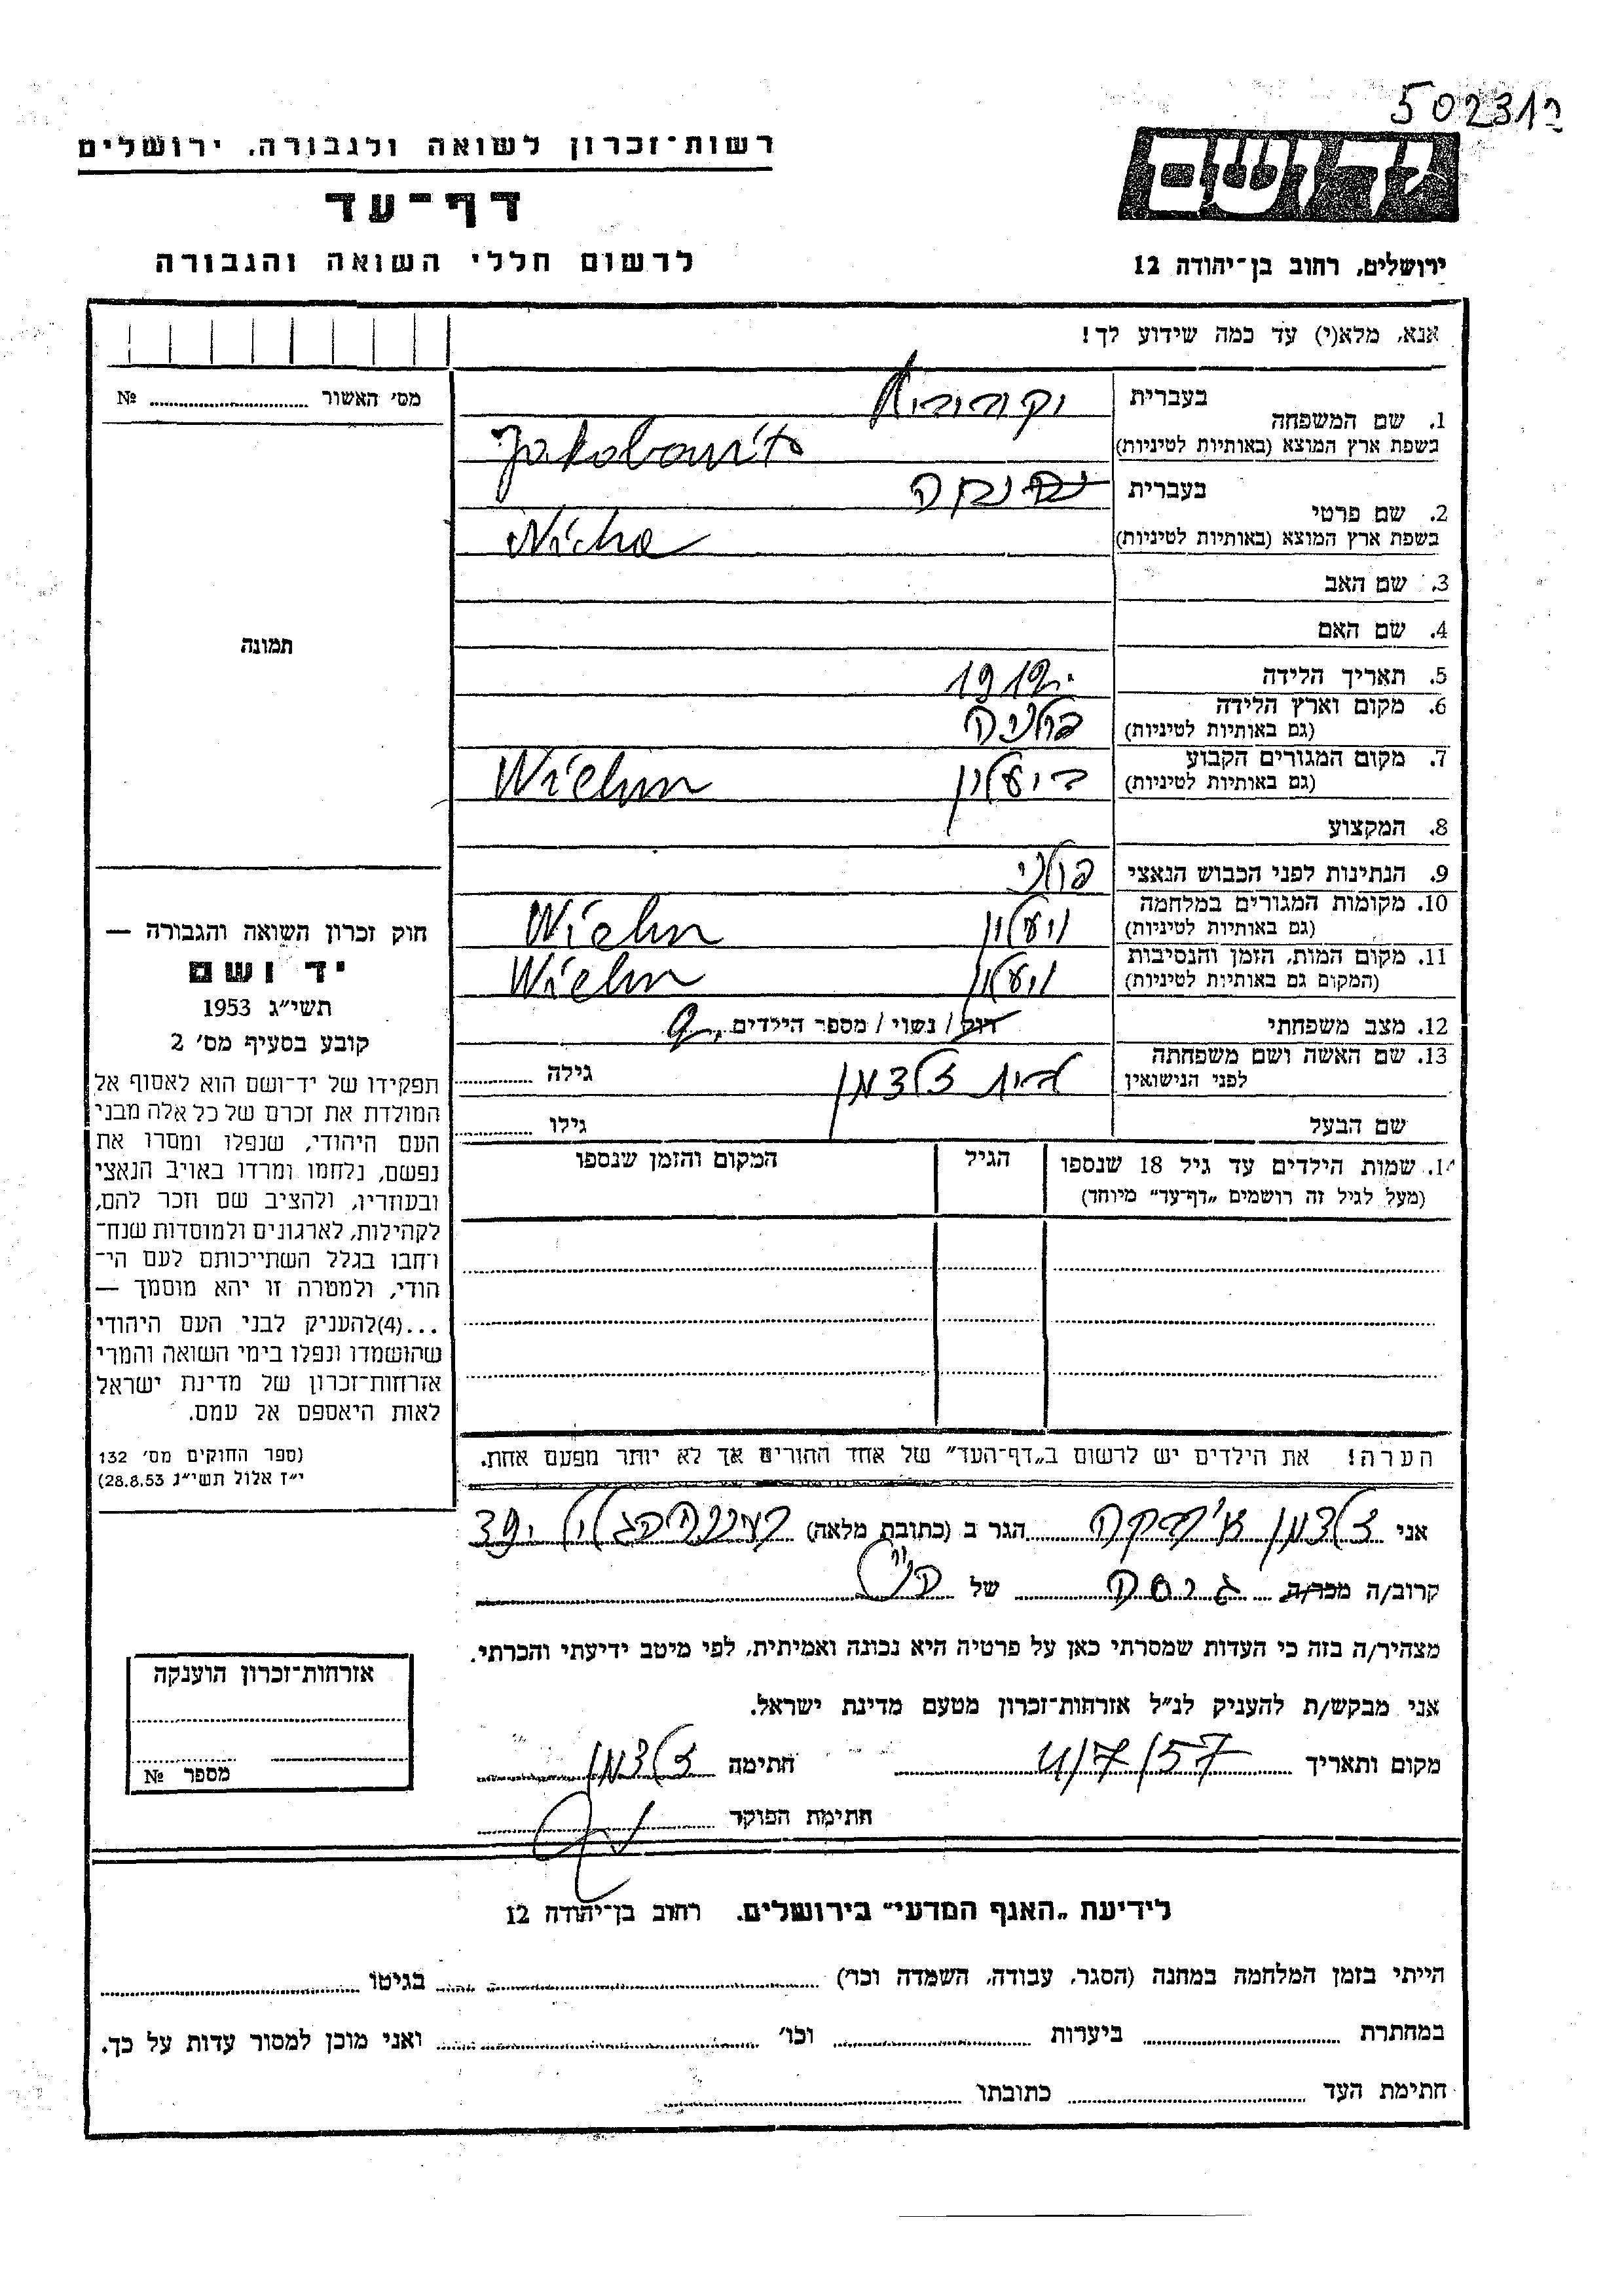 502312
רשות-זכרון לשואה ולגבורה. ירושלים
דף-עד
לרשום חללי השואה והגבורה
יד ושם
ירושלים, רחוב בן-יהודה 12
אנא, מלא(י) עד כמה שידוע לך!
מס׳ האשור № 
בעברית
1. שם המשפחה
בשפת ארץ המוצא (באותיות לטיניות) Jakobowitz
בעברית
2. שם פרטי
בשפת ארץ המוצא (באותיות לטיניות)
3. שם האב
4. שם האם
תמונה
5. תאריך הלידה 1912
6. מקום וארץ הלידה פולניה
(גם באותיות לטיניות)
7. מקום המגורים הקבוע
(גם באותיות לטיניות) Wielun
8. המקצוע
9. הנתינות לפני הכבוש הנאצי פולני
10. מקומות המגורים במלחמה
(גם באותיות לטיניות) ויעלון Wielun
11. מקום המות, הזמן והנסיבות
(המקום גם באותיות לטיניות) ויעלון Wielun
12. מצב משפחתי רווק / נשוי / מספר הילדים
13. שם האשה ושם משפחתה
לפני הנישואין זלצמן גילה
שם הבעל גילו
14. שמות הילדים עד גיל 18 שנספו הגיל המקום והזמן שנספו
(מעל לגיל זה רושמים „דף-עד” מיוחד)
הערה! את הילדים יש לרשום ב„דף-העד” של אחד ההורים אך לא יותר מפעם אחת.
חוק זכרון השואה והגבורה —
יד ושם
תשי״ג 1953
קובע בסעיף מס׳ 2
תפקידו של יד-ושם הוא לאסוף אל
המולדת את זכרם של כל אלה מבני
העם היהודי, שנפלו ומסרו את
נפשם, נלחמו ומרדו באויב הנאצי
ובעוזריו, ולהציב שם וזכר להם,
לקהילות, לארגונים ולמוסדות שנח-
רחבו בגלל השתייכותם לעם הי-
הודי, ולמטרה זו יהא מוסמך —
...(4)להעניק לבני העם היהודי
שהושמדו ונפלו בימי השואה והמרי
אזרחות-זכרון של מדינת ישראל
לאות היאספם אל עמם.
(ספר החוקים מס׳ 132
י״ז אלול תשי״ג 28.8.53)
אני זלצמן הגר ב (כתובת מלאה)
קרוב/ה מכר/ה גיסה של
מצהיר/ה בזה כי העדות שמסרתי כאן על פרטיה היא נכונה ואמיתית, לפי מיטב ידיעתי והכרתי.
אני מבקש/ת להעניק לנ״ל אזרחות-זכרון מטעם מדינת ישראל.
מקום ותאריך 4/7/57 חתימה זלצמן
חתימת הפוקד
אזרחות-זכרון הוענקה
מספר №
לידיעת „האגף המדעי” בירושלים. רחוב בן-יהודה 12
הייתי בזמן המלחמה במחנה (הסגר, עבודה, השמדה וכו׳) בגיטו
במחתרת ביערות וכו׳ ואני מוכן למסור עדות על כך.
חתימת העד כתובתו